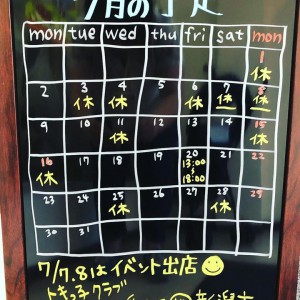 7月の予定
mon tue wed thu fri sat mon
1
休
2 3 4 5 6 7 8
休 休 休 休
9 10 11 12 13 14 15
休 休
16 17 18 19 20 21 22
休 13:00
〜
18:00
23 24 25 26 27 28 29
休 休
30 31
7/7.8はイベント出店
トキっ子クラブ